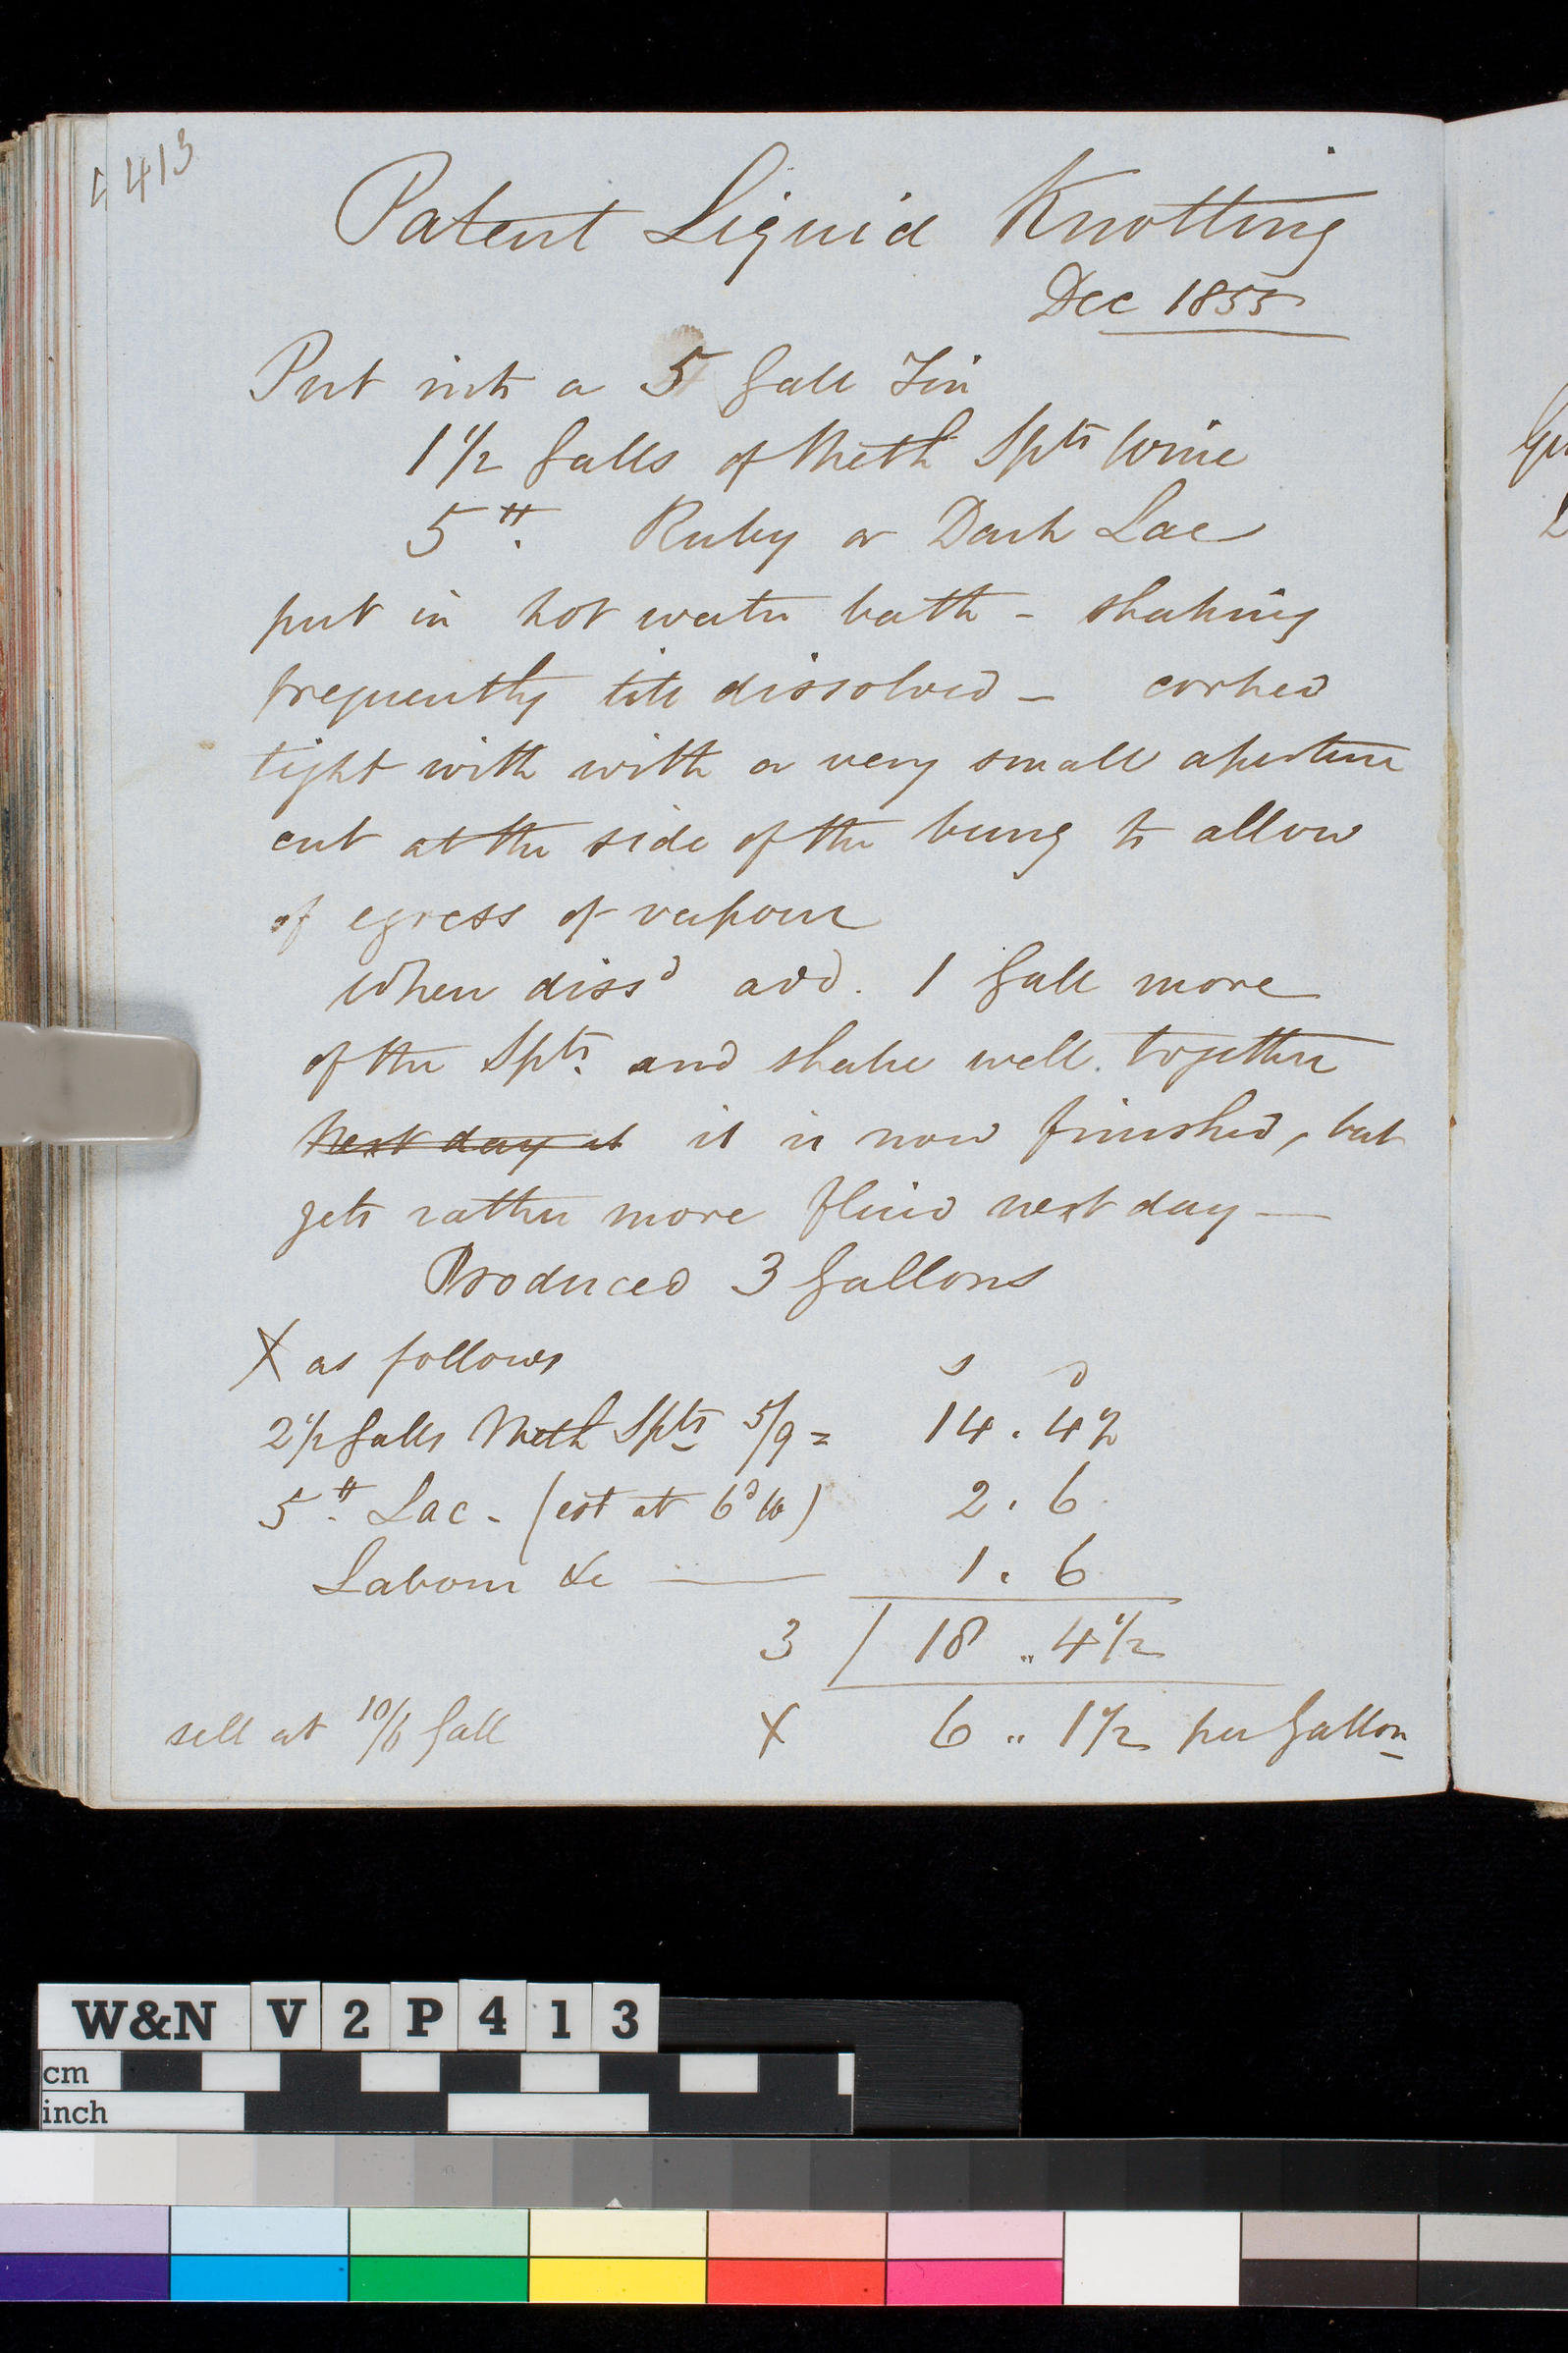 413
Patent Liquid Knotting
Dec 1855
Put into a 5 Gall Tin
1 1/2 Galls of Meth Spts Wine
5 lb. Ruby or Dark Lac
put in hot water bath - shaking
frequently till dissolved - corked
tight with with a very small aperture
cut at the side of the bung to allow
of egress of vapour
When dissd add. 1 Gall more
of the Spts. and shake well. together
Next day it it is now finished, but
gets rather more fluid next day —
Produced 3 Gallons
X as follows s d
2 1/2 Galls Meth Spts 5/9 = 14 . 4 1/2
5 lb. Lac - (cot at 6d lb) 2 . 6
Labour &c — 1 . 6
3 / 18 .. 4 1/2
sell at 10/6 Gall X 6 .. 1 1/2 per Gallon
W&N V 2 P 4 1 3
cm
inch